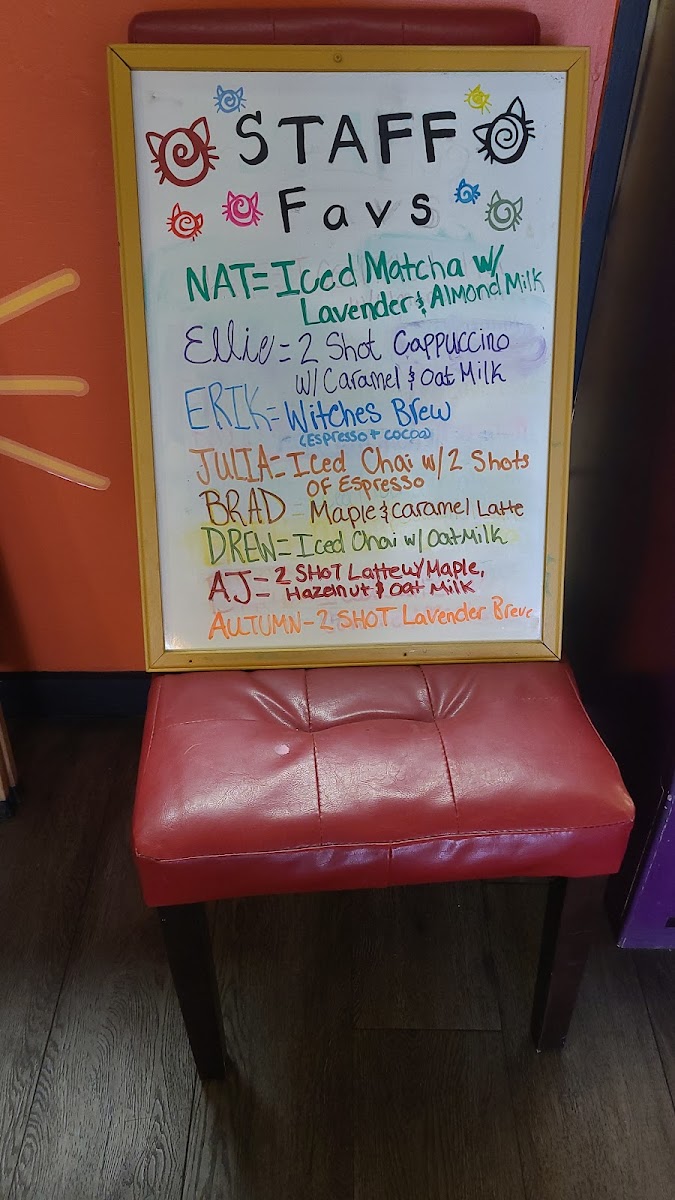 STAFF
Favs
NAT=Iced Matcha w/
Lavender & Almond Milk
Ellie=2 Shot Cappuccino
w/ Caramel & Oat Milk
ERIK=Witches Brew
(Espresso + cocoa)
JULIA=Iced Chai w/ 2 Shots
of Espresso
BRAD = Maple & Caramel Latte
DREW=Iced Chai w/ Oat Milk
AJ=2 SHOT Latte w/ Maple,
Hazelnut & Oat Milk
AUTUMN-2 SHOT Lavender Breve